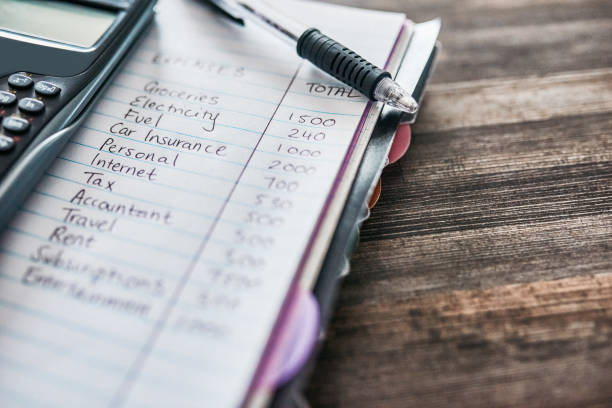 EXPENSES TOTAL
Groceries 1500
Electricity 240
Fuel 1000
Car Insurance 2000
Personal 700
Internet 530
Tax 500
Accountant
Travel
Rent
Subscriptions
Entertainment